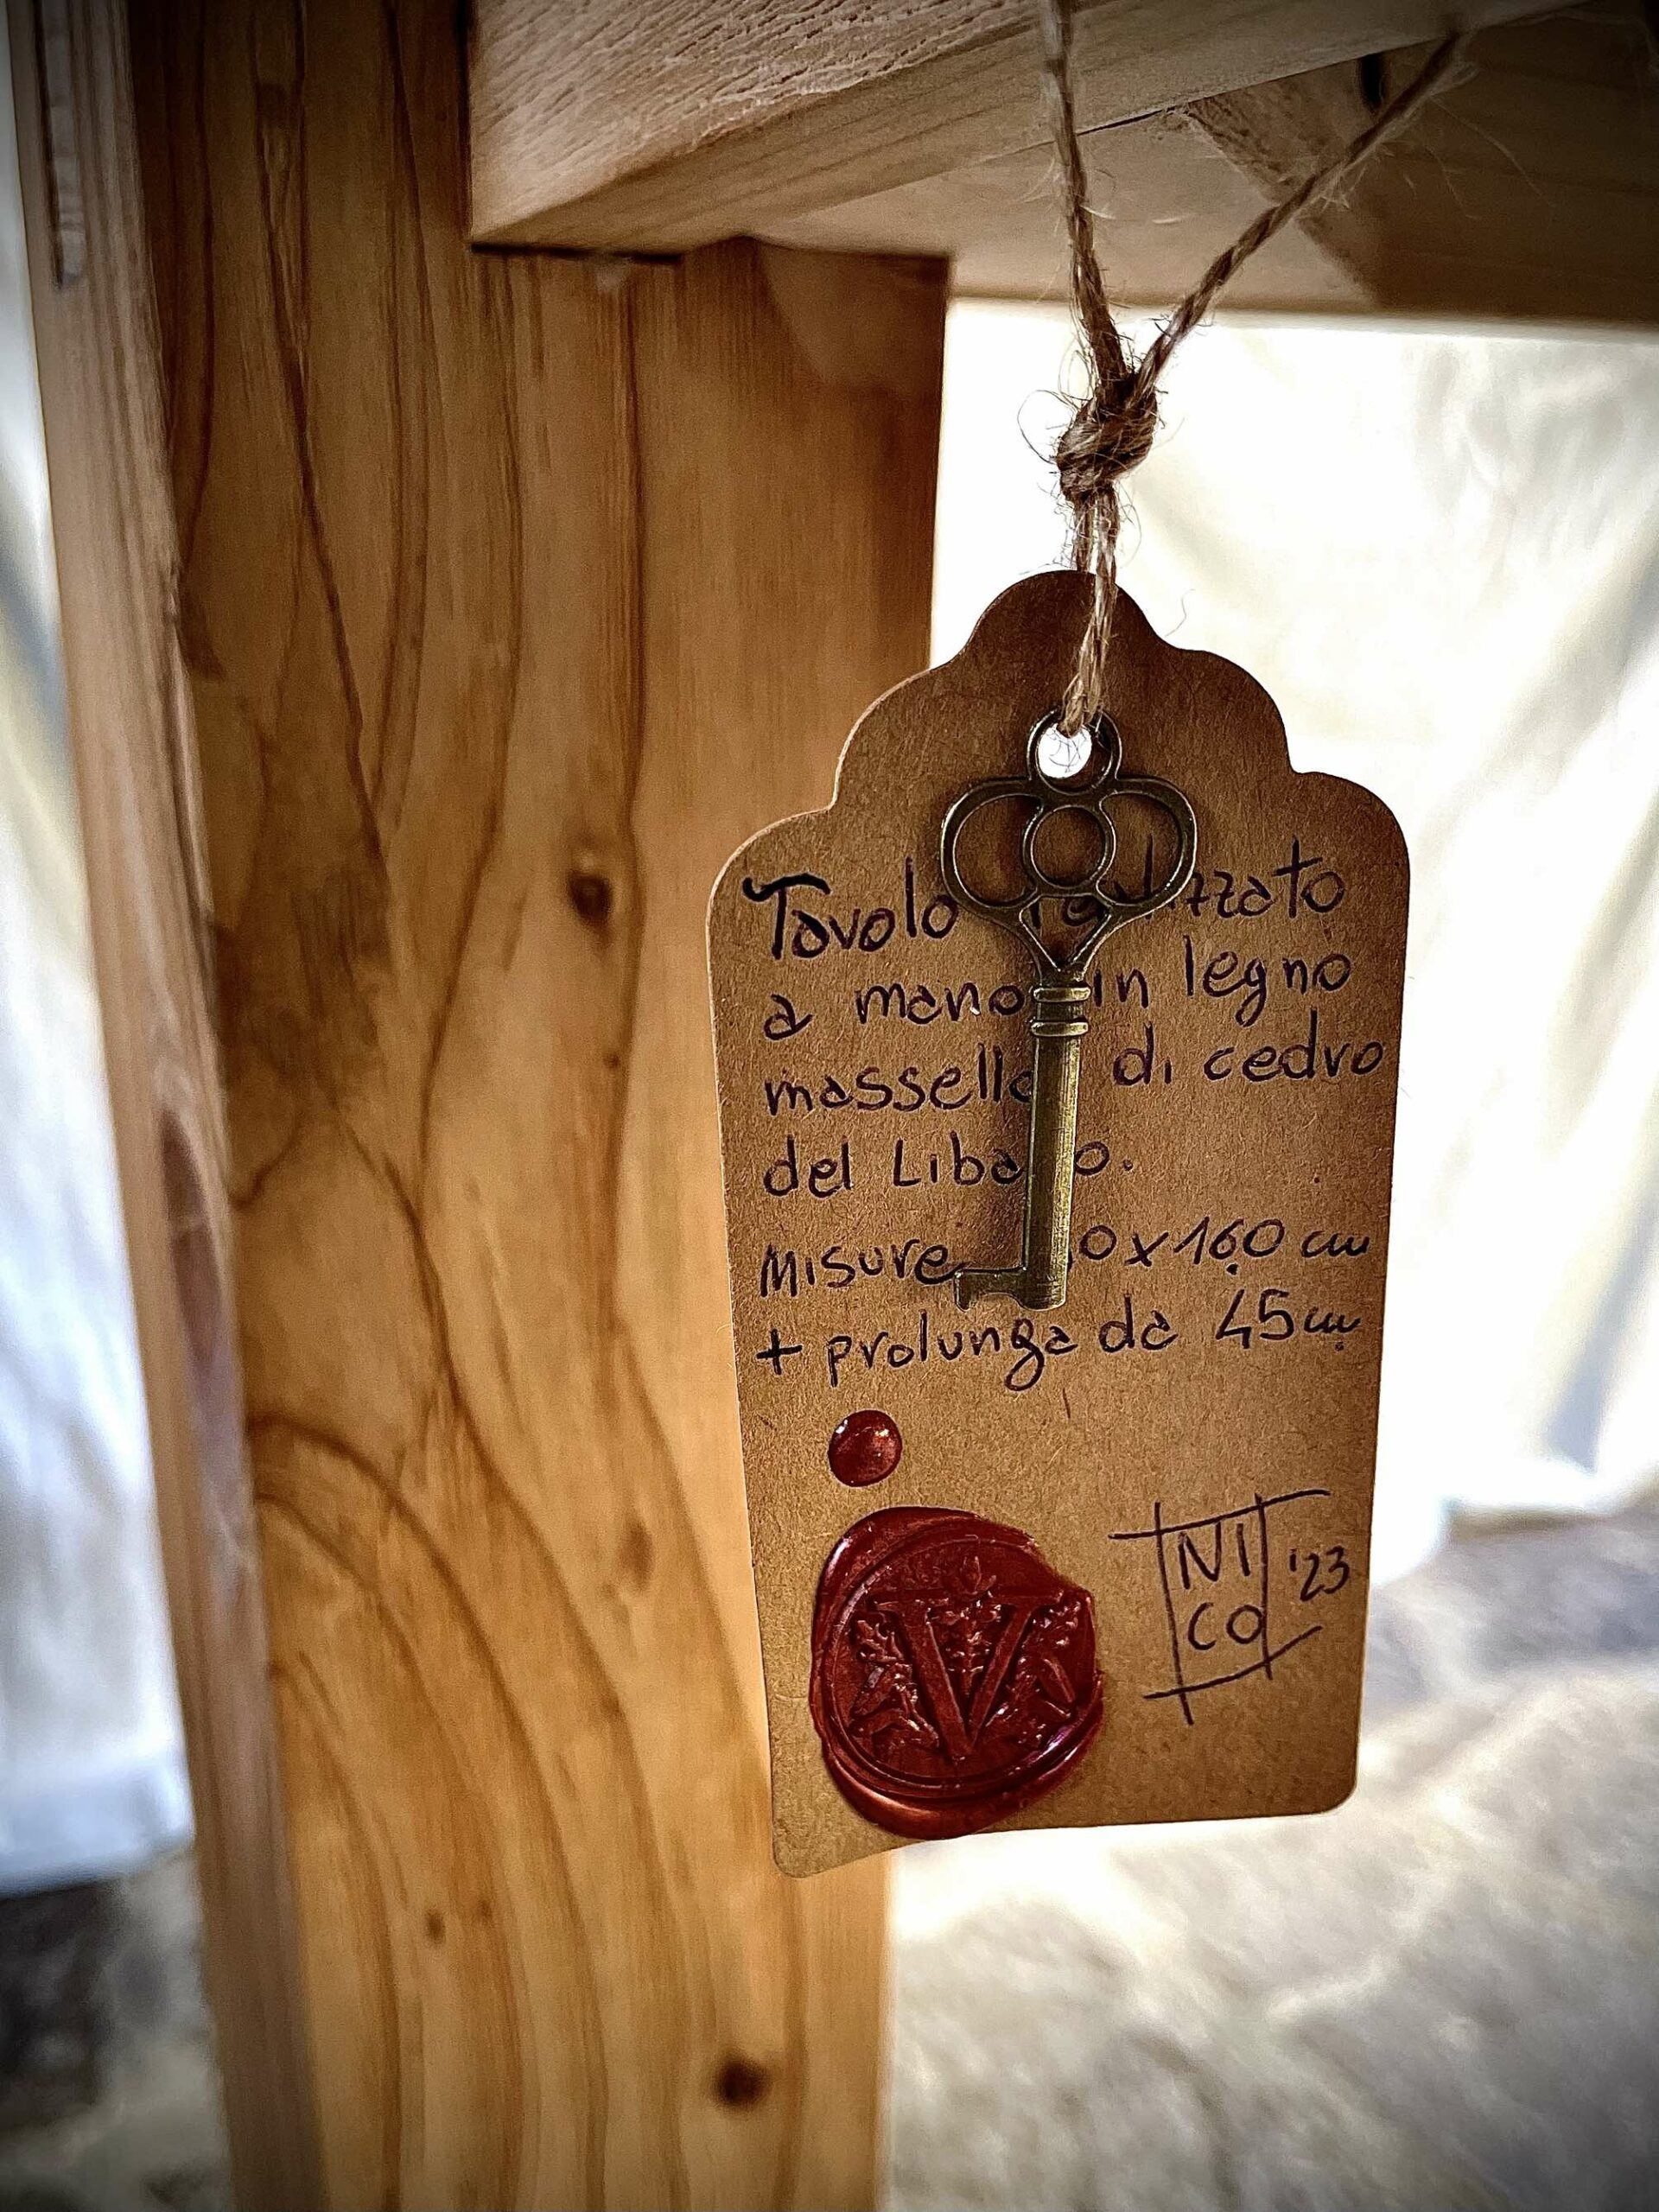 Tavolo realizzato
a mano in legno
massello di cedro
del Libano.
Misure 0x160 cm
+ prolunga da 45cm
NI
CO '23
V